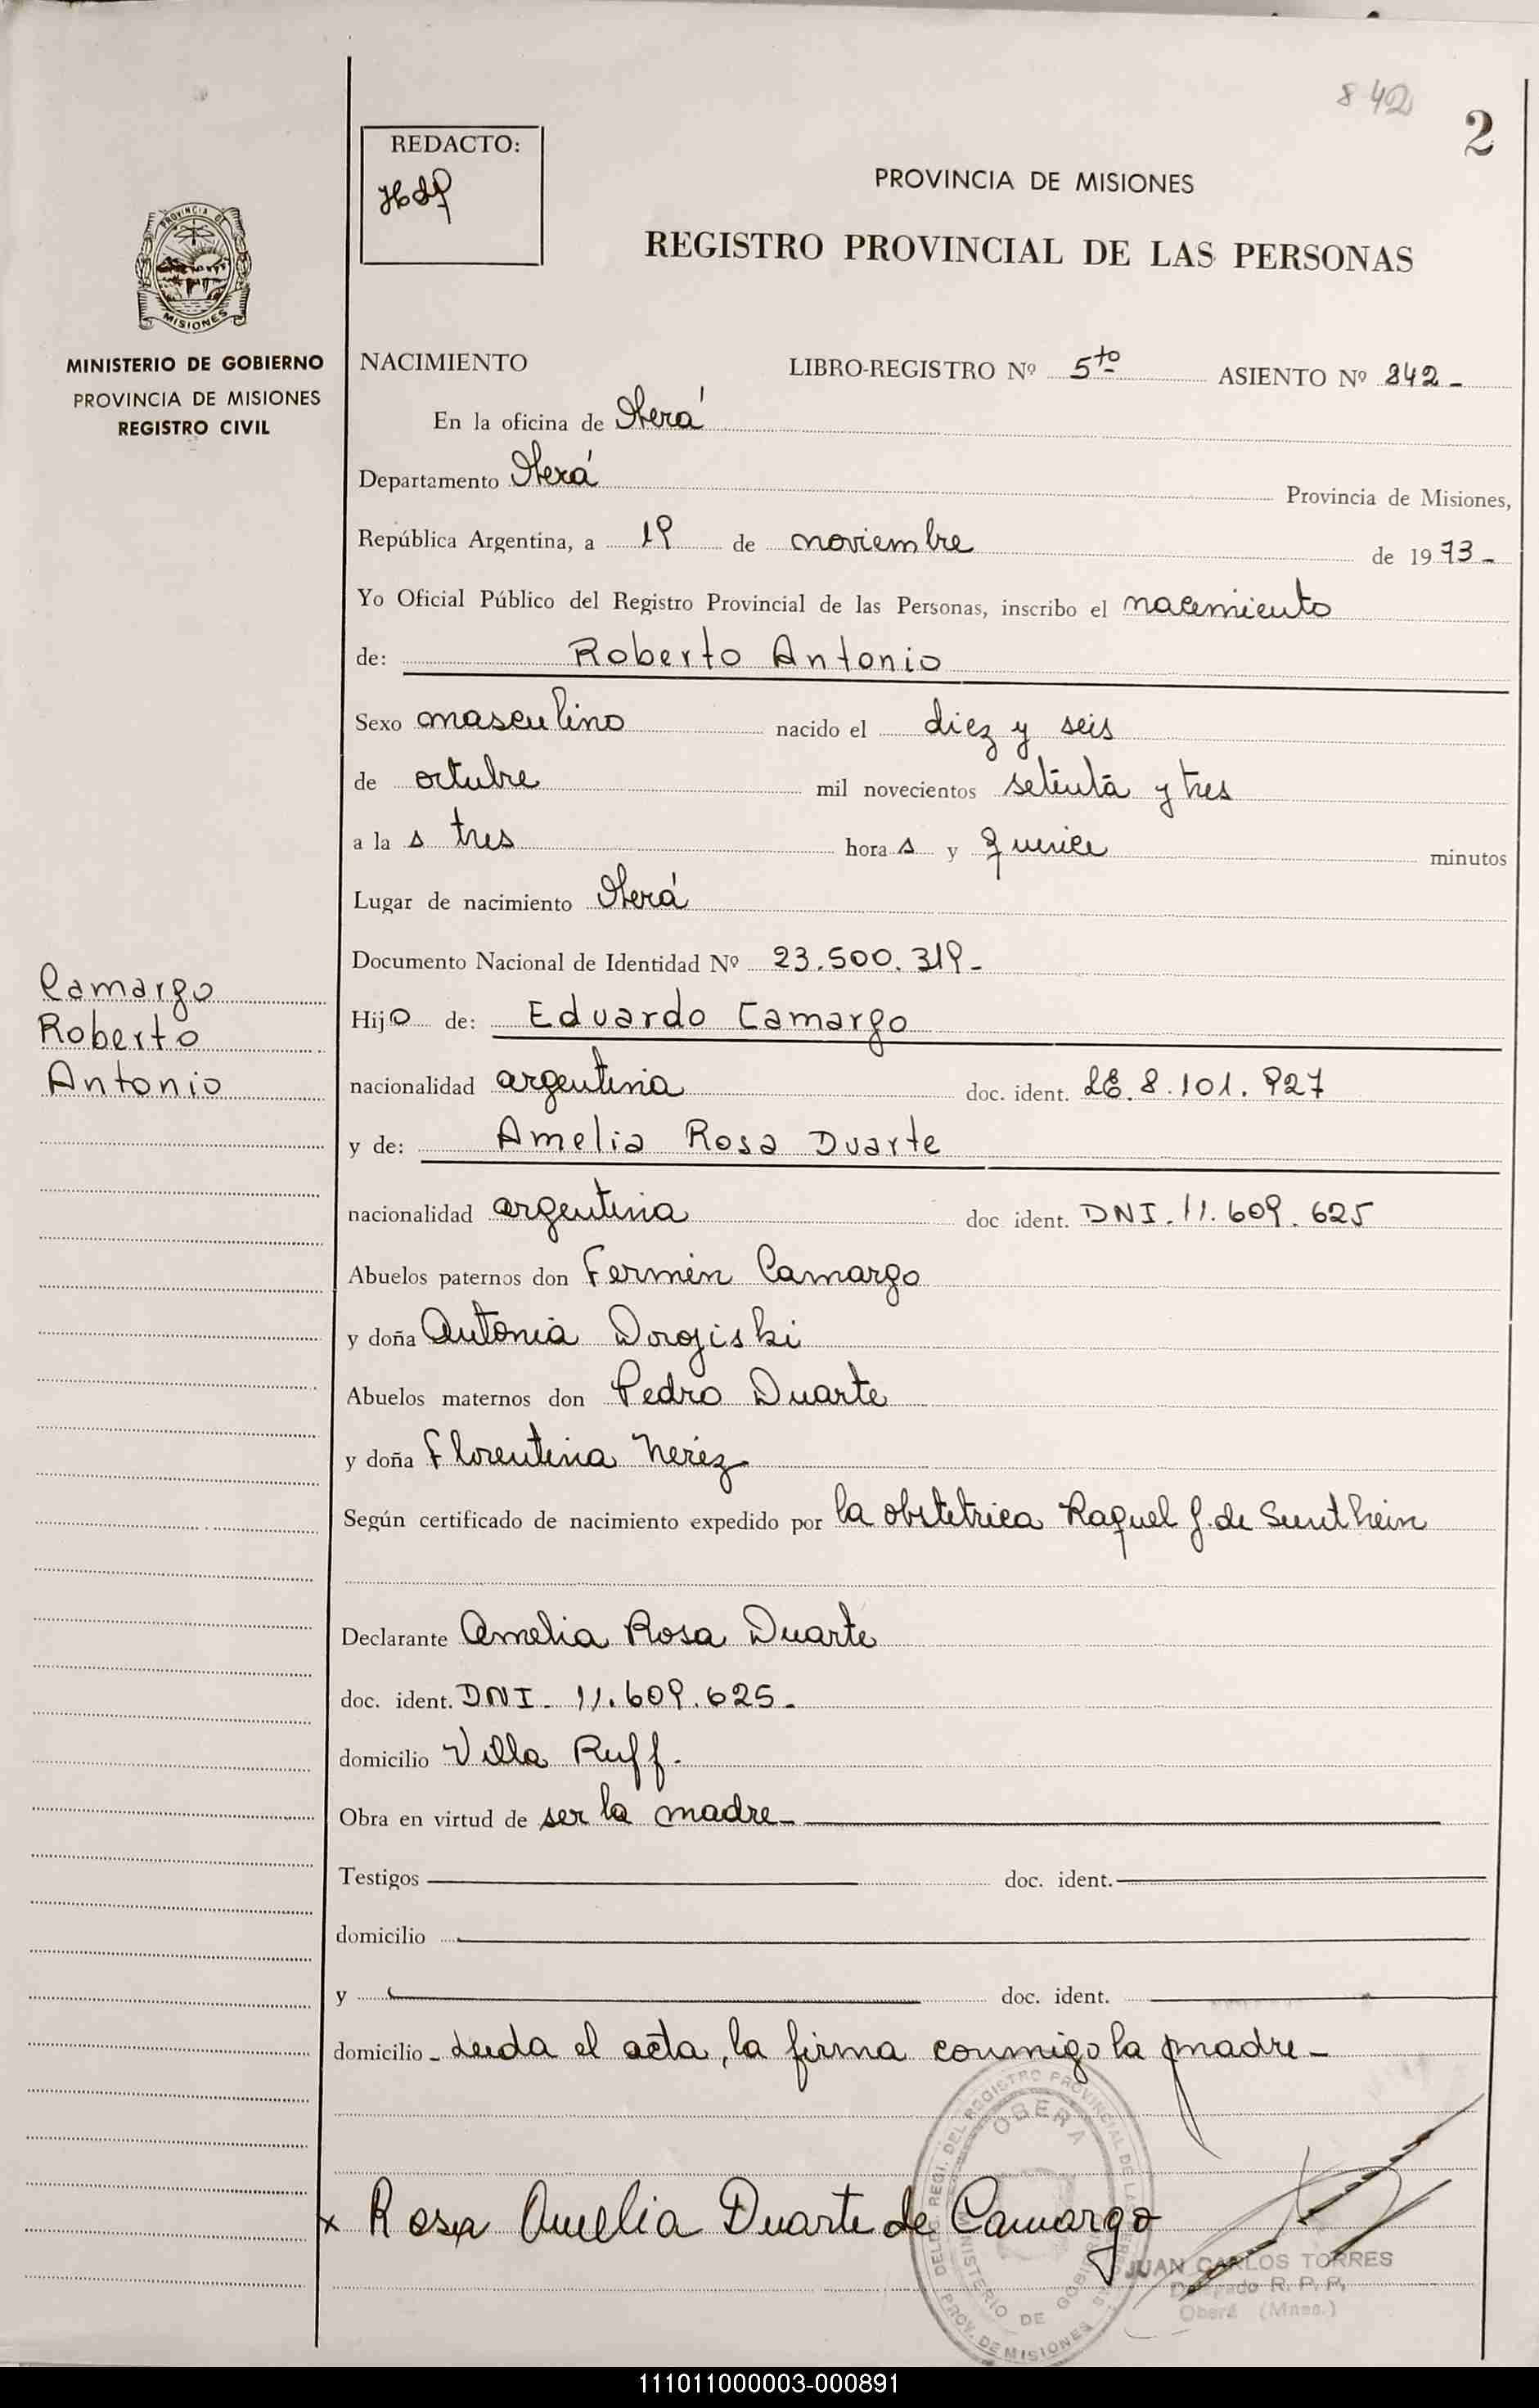 842
2
REDACTO:
PROVINCIA DE MISIONES
REGISTRO PROVINCIAL DE LAS PERSONAS
PROVINCIA DE
MISIONES
MINISTERIO DE GOBIERNO
PROVINCIA DE MISIONES
REGISTRO CIVIL
NACIMIENTO LIBRO-REGISTRO Nº 5to ASIENTO Nº 842-
En la oficina de Oberá
Departamento Oberá Provincia de Misiones,
República Argentina, a 19 de noviembre de 1973-
Yo Oficial Público del Registro Provincial de las Personas, inscribo el nacimiento
de: Roberto Antonio
Sexo masculino nacido el diez y seis
de octubre mil novecientos setenta y tres
a la s tres hora s y quince minutos
Lugar de nacimiento Oberá
Documento Nacional de Identidad Nº 23.500.319-
Camargo
Roberto
Antonio
Hijo de: Eduardo Camargo
nacionalidad argentina doc. ident. LE. 8.101.927
y de: Amelia Rosa Duarte
nacionalidad argentina doc ident. DNI. 11.609.625
Abuelos paternos don Fermín Camargo
y doña Antonia Dorojiski
Abuelos maternos don Pedro Duarte
y doña Florentina Nerez
Según certificado de nacimiento expedido por la obstetrica Raquel J. de Sunthein
Declarante Amelia Rosa Duarte
doc. ident. DNI- 11.609.625-
domicilio Villa Ruff.
Obra en virtud de ser la madre-
Testigos doc. ident.
domicilio
y doc. ident.
domicilio - Leida el acta, la firma conmigo la madre-
OBERA
x Rosa Amelia Duarte de Camargo
MINISTERIO DE GOBIERNO
PROV. DE MISIONES
JUAN CARLOS TORRES
Delegado R. P. P.
Oberá (Mnes.)
111011000003-000891